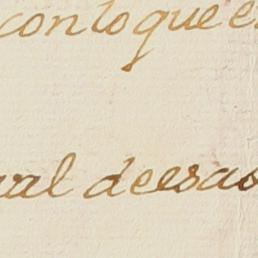 con lo que e
val deesas